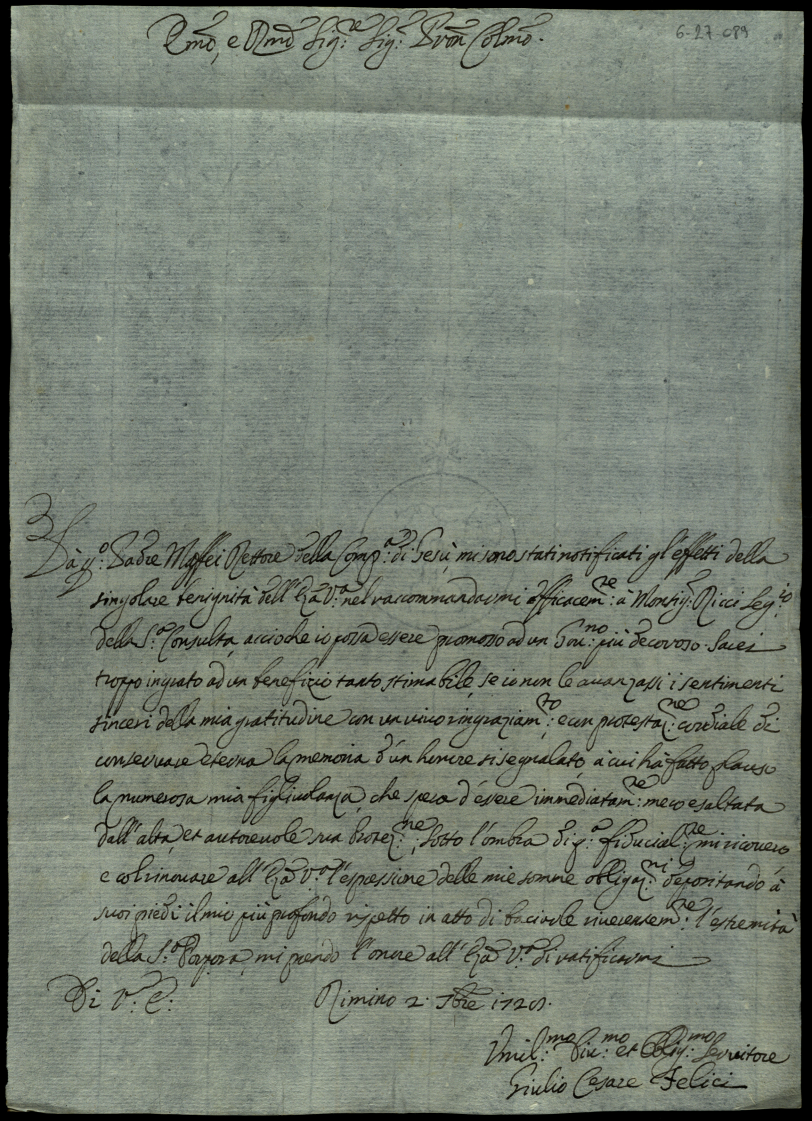 Emo, e Rmo Sig:re Sig:r Pron Colmo.
6-27-089
Dà q.o: Padre Maffei Rettore della Comp.a: di Gesù, mi sono stati notificati gl'effetti della
singolare benignità dell'Eza V.a: nel raccommandarmi efficacem:re à Monsig.r: Ricci Seg:io
della S.a: Consulta, accioche io possa essere promosso ad un Gou:no più decoroso. Sarei
troppo ingrato ad un benefizio tanto stimabile, se io non le auanzassi i sentimenti
sinceri della mia gratitudine con un viuo ringraziam:to, e con protestaz:ne cordiale di
conseruare eterna la memoria d'un honore si segnalato, à cui hà fatto plauso
la numerosa mia figliudanza, che spera d'essere immediatam:re meco esaltata
dall'alta, et autoreuole sua Protez:ne, Sotto l'ombra di q.a: fiducial:re mi ricouero
e col rinouare all'Eza V.a: l'espressione delle mie somme obligaz:ni depositando à
suoi piedi il mio più profondo rispetto in atto di baciarle riuerentem:re l'estremità
della S.a: Porpora, mi prendo l'onore all'Eza V.a: di ratificarmi
Di V.a: E:
Rimino 2. 9bre 1720.
Vmil:mo Diu:mo et Oblig:mo Seruitore
Giulio Cesare Felici